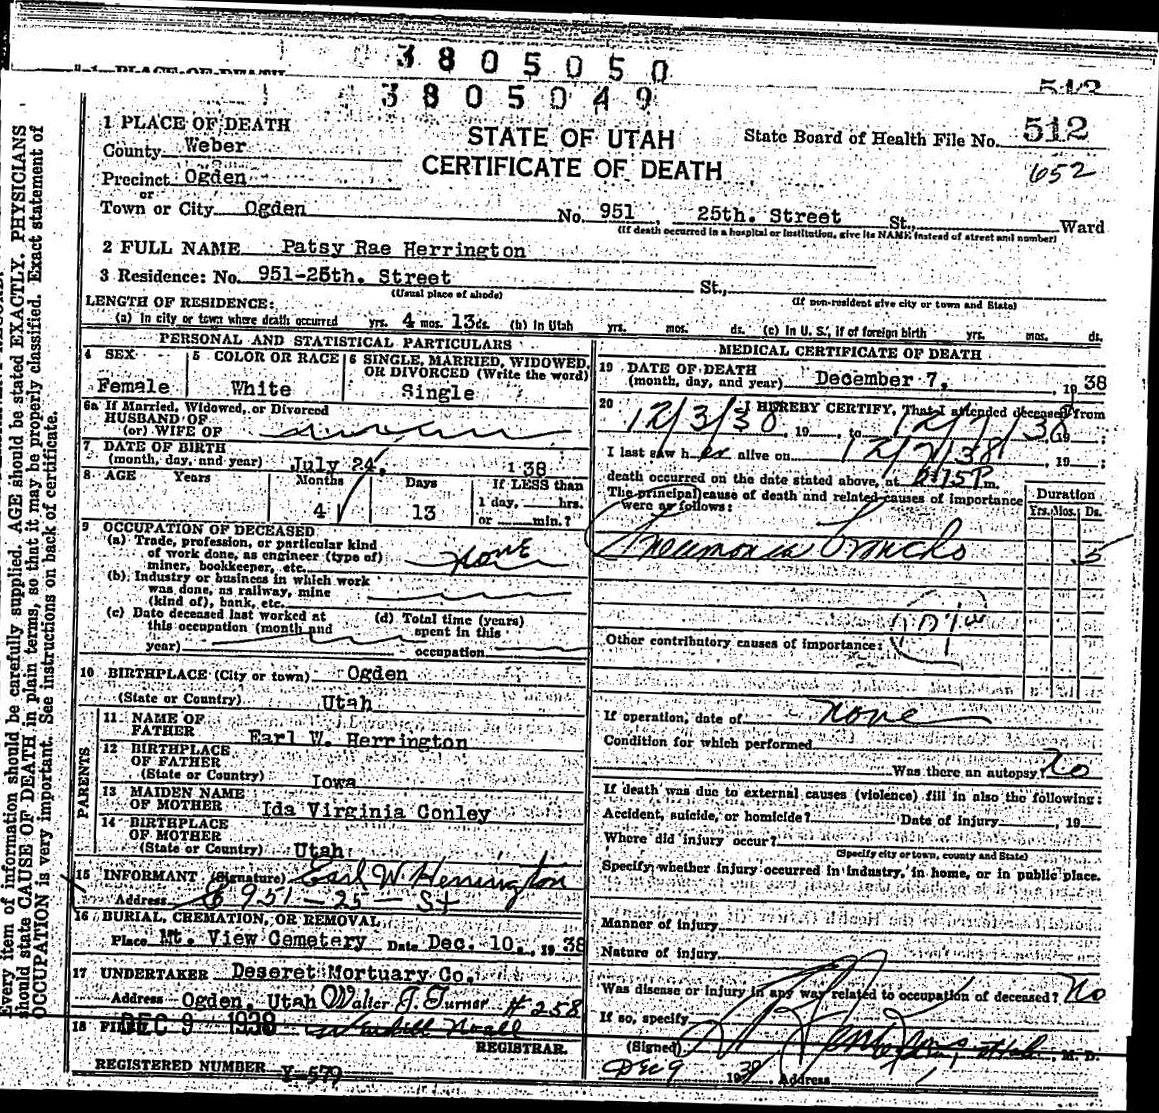 3805050
3805049
512
1 PLACE OF DEATH
STATE OF UTAH
CERTIFICATE OF DEATH
State Board of Health File No. 512
652
County Weber
Precinct Ogden
or
Town or City Ogden No. 951 25th. Street St., Ward
(If death occurred in a hospital or institution, give its NAME instead of street and number)
2 FULL NAME Patsy Rae Herrington
3 Residence: No. 951-25th. Street St.,
(Usual place of abode) (If non-resident give city or town and State)
LENGTH OF RESIDENCE:
(a) In city or town where death occurred yrs. 4 mos. 13 ds. (b) In Utah yrs. mos. ds. (c) In U. S., if of foreign birth yrs. mos. ds.
PERSONAL AND STATISTICAL PARTICULARS
4 SEX Female
5 COLOR OR RACE White
6 SINGLE, MARRIED, WIDOWED, OR DIVORCED (Write the word) Single
6a If Married, Widowed, or Divorced
HUSBAND OF
(or) WIFE OF
7 DATE OF BIRTH
(month, day, and year) July 24, 138
8 AGE Years Months Days If LESS than
4 13 1 day, hrs.
or min.?
9 OCCUPATION OF DECEASED
(a) Trade, profession, or particular kind
of work done, as engineer (type of)
miner, bookkeeper, etc. None
(b) Industry or business in which work
was done, as railway, mine
(kind of), bank, etc.
(c) Date deceased last worked at
this occupation (month and
year)
(d) Total time (years)
spent in this
occupation
10 BIRTHPLACE (City or town) Ogden
(State or Country) Utah
PARENTS
11 NAME OF
FATHER Earl W. Herrington
12 BIRTHPLACE
OF FATHER
(State or Country) Iowa
13 MAIDEN NAME
OF MOTHER Ida Virginia Conley
14 BIRTHPLACE
OF MOTHER
(State or Country) Utah
15 INFORMANT (Signature) Earl W. Herrington
Address 951 - 25 - St
16 BURIAL, CREMATION, OR REMOVAL
Place Mt. View Cemetery Date Dec. 10, 1938
17 UNDERTAKER Deseret Mortuary Co.
Address Ogden, Utah Walter J. Turner # 258
18 FILED DEC 9 1938
REGISTRAR.
REGISTERED NUMBER Y-579
MEDICAL CERTIFICATE OF DEATH
19 DATE OF DEATH
(month, day, and year) December 7, 1938
20 I HEREBY CERTIFY, That I attended deceased from
12/3/38, 19 , to 12/7/38, 19 ;
I last saw her alive on 12/7/38, 19 ;
death occurred on the date stated above, at 15 P. m.
The principal cause of death and related causes of importance
were as follows:
Duration
Yrs. Mos. Ds.
Pneumonia Broncho 5
Other contributory causes of importance:
If operation, date of none
Condition for which performed
Was there an autopsy? No
If death was due to external causes (violence) fill in also the following:
Accident, suicide, or homicide? Date of injury 19
Where did injury occur?
(Specify city or town, county and State)
Specify whether injury occurred in industry, in home, or in public place.
Manner of injury
Nature of injury
Was disease or injury in any way related to occupation of deceased? No
If so, specify
(Signed) , M. D.
Dec 9 1938, Address
Every item of information should be carefully supplied. AGE should be stated EXACTLY. PHYSICIANS
should state CAUSE OF DEATH in plain terms, so that it may be properly classified. Exact statement of
OCCUPATION is very important. See instructions on back of certificate.